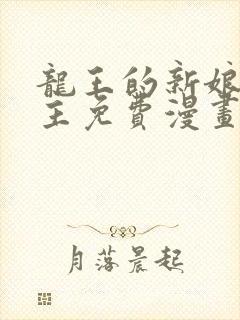 龍王的新娘
王免費漫畫
月落晨起